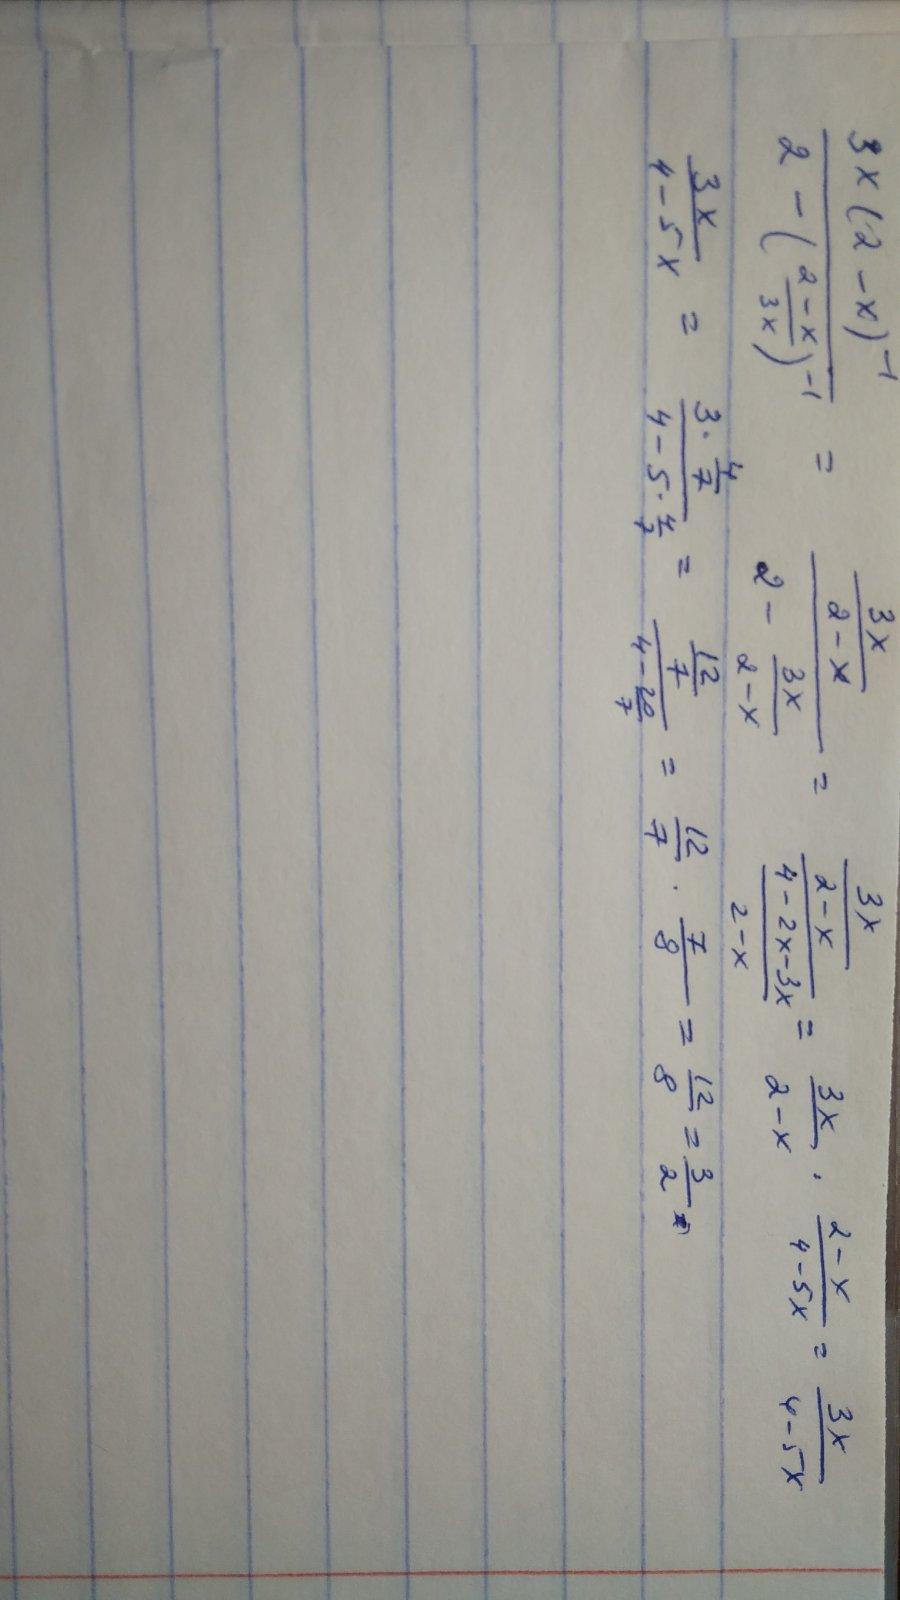 \frac{3x(2-x)^{-1}}{2-(\frac{2-x}{3x})^{-1}} = \frac{\frac{3x}{2-x}}{2-\frac{3x}{2-x}} = \frac{\frac{3x}{2-x}}{\frac{4-2x-3x}{2-x}} = \frac{3x}{2-x} \cdot \frac{2-x}{4-5x} = \frac{3x}{4-5x}
\frac{3x}{4-5x} = \frac{3 \cdot \frac{4}{7}}{4-5 \cdot \frac{4}{7}} = \frac{\frac{12}{7}}{4-\frac{20}{7}} = \frac{12}{7} \cdot \frac{7}{8} = \frac{12}{8} = \frac{3}{2}